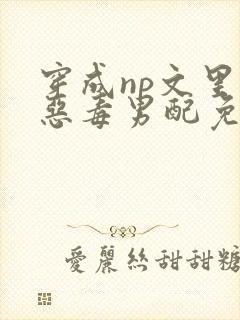 穿成np文里
惡毒男配免
愛麗絲甜甜糖